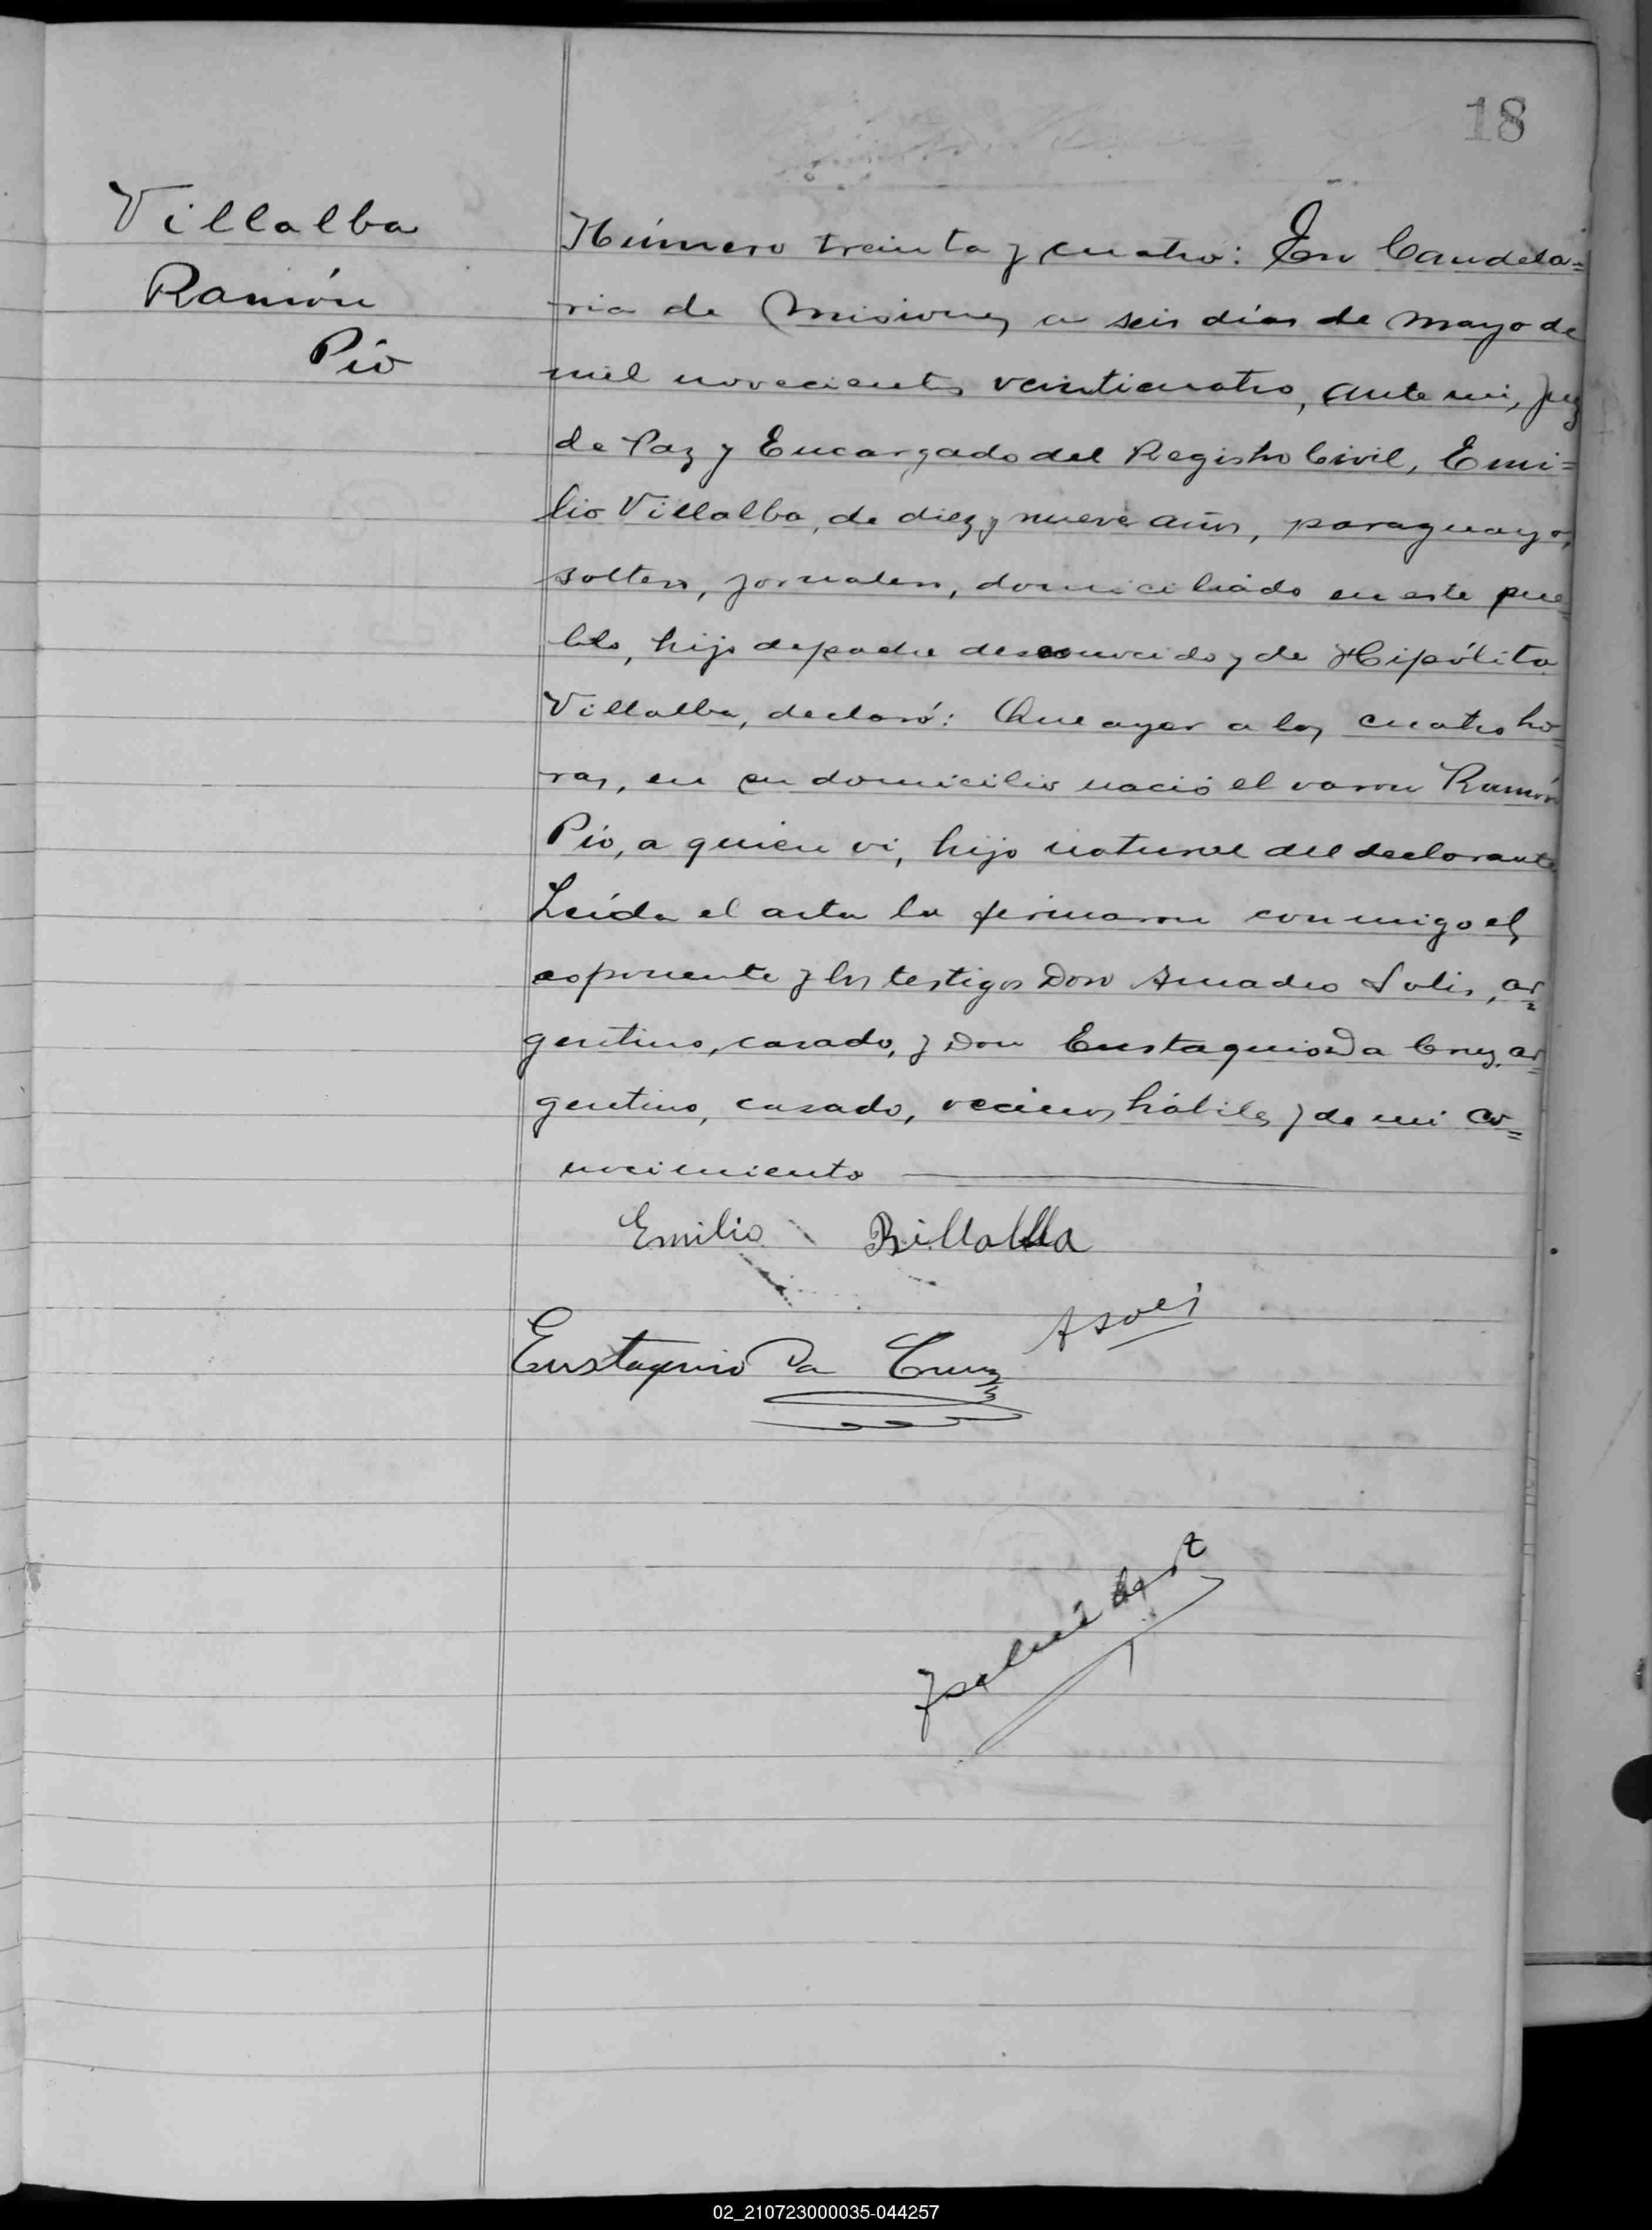 18
Villalba
Ramón
Pío
Número treinta y cuatro: En Candela=
ria de Misiones, a seis días de Mayo de
mil novecientos veinticuatro, ante mi, Juez
de Paz y Encargado del Registro Civil, Emi=
lio Villalba, de diez y nueve años, paraguayo,
soltero, jornalero, domiciliado en este pue=
blo, hijo de padre desconocido y de Hipólita
Villalba, declaró: Que ayer a las cuatro ho=
ras, en su domicilio nació el varon Ramón
Pío, a quien vi, hijo natural del declarante
Leída el acta la firmaron conmigo el
exponente y los testigos Don Amadeo Solis, ar=
gentino, casado, y Don Eustaquio Da Cruz, ar=
gentino, casado, vecinos hábiles y de mi co=
nocimiento
Emilio Billalba
Eustaquio Da Cruz
02_210723000035-044257